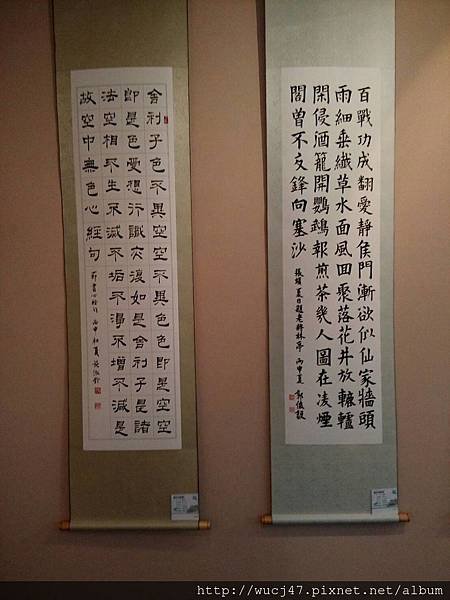 百戰功成翻愛靜侯門漸欲似仙家牆頭
雨細垂纖草水面風回聚落花井放轆轤
閑侵酒籠開鸚鵡報煎茶幾人圖在凌煙
閣曾不交鋒向塞沙
張蠙夏日題老將林亭 丙申夏
舍利子色不異空空不異色色即是空空
即是色受想行識亦復如是舍利子是諸
法空相不生不滅不垢不淨不增不減是
故空中無色心經句
丙申初夏
http://wucj47.pixnet.net/album